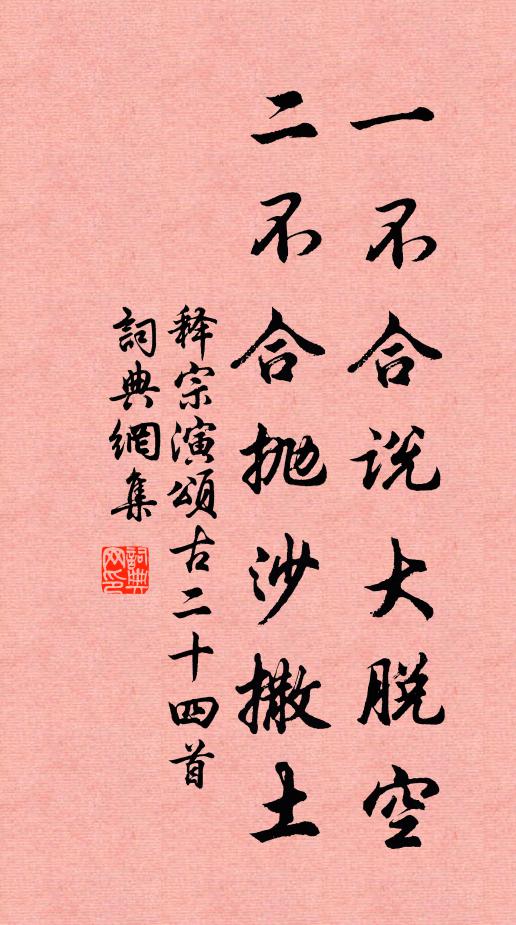 一不合说大脱空
二不合抛沙撒土
释宗演頌古二十四首
詞典網集
詞典网印